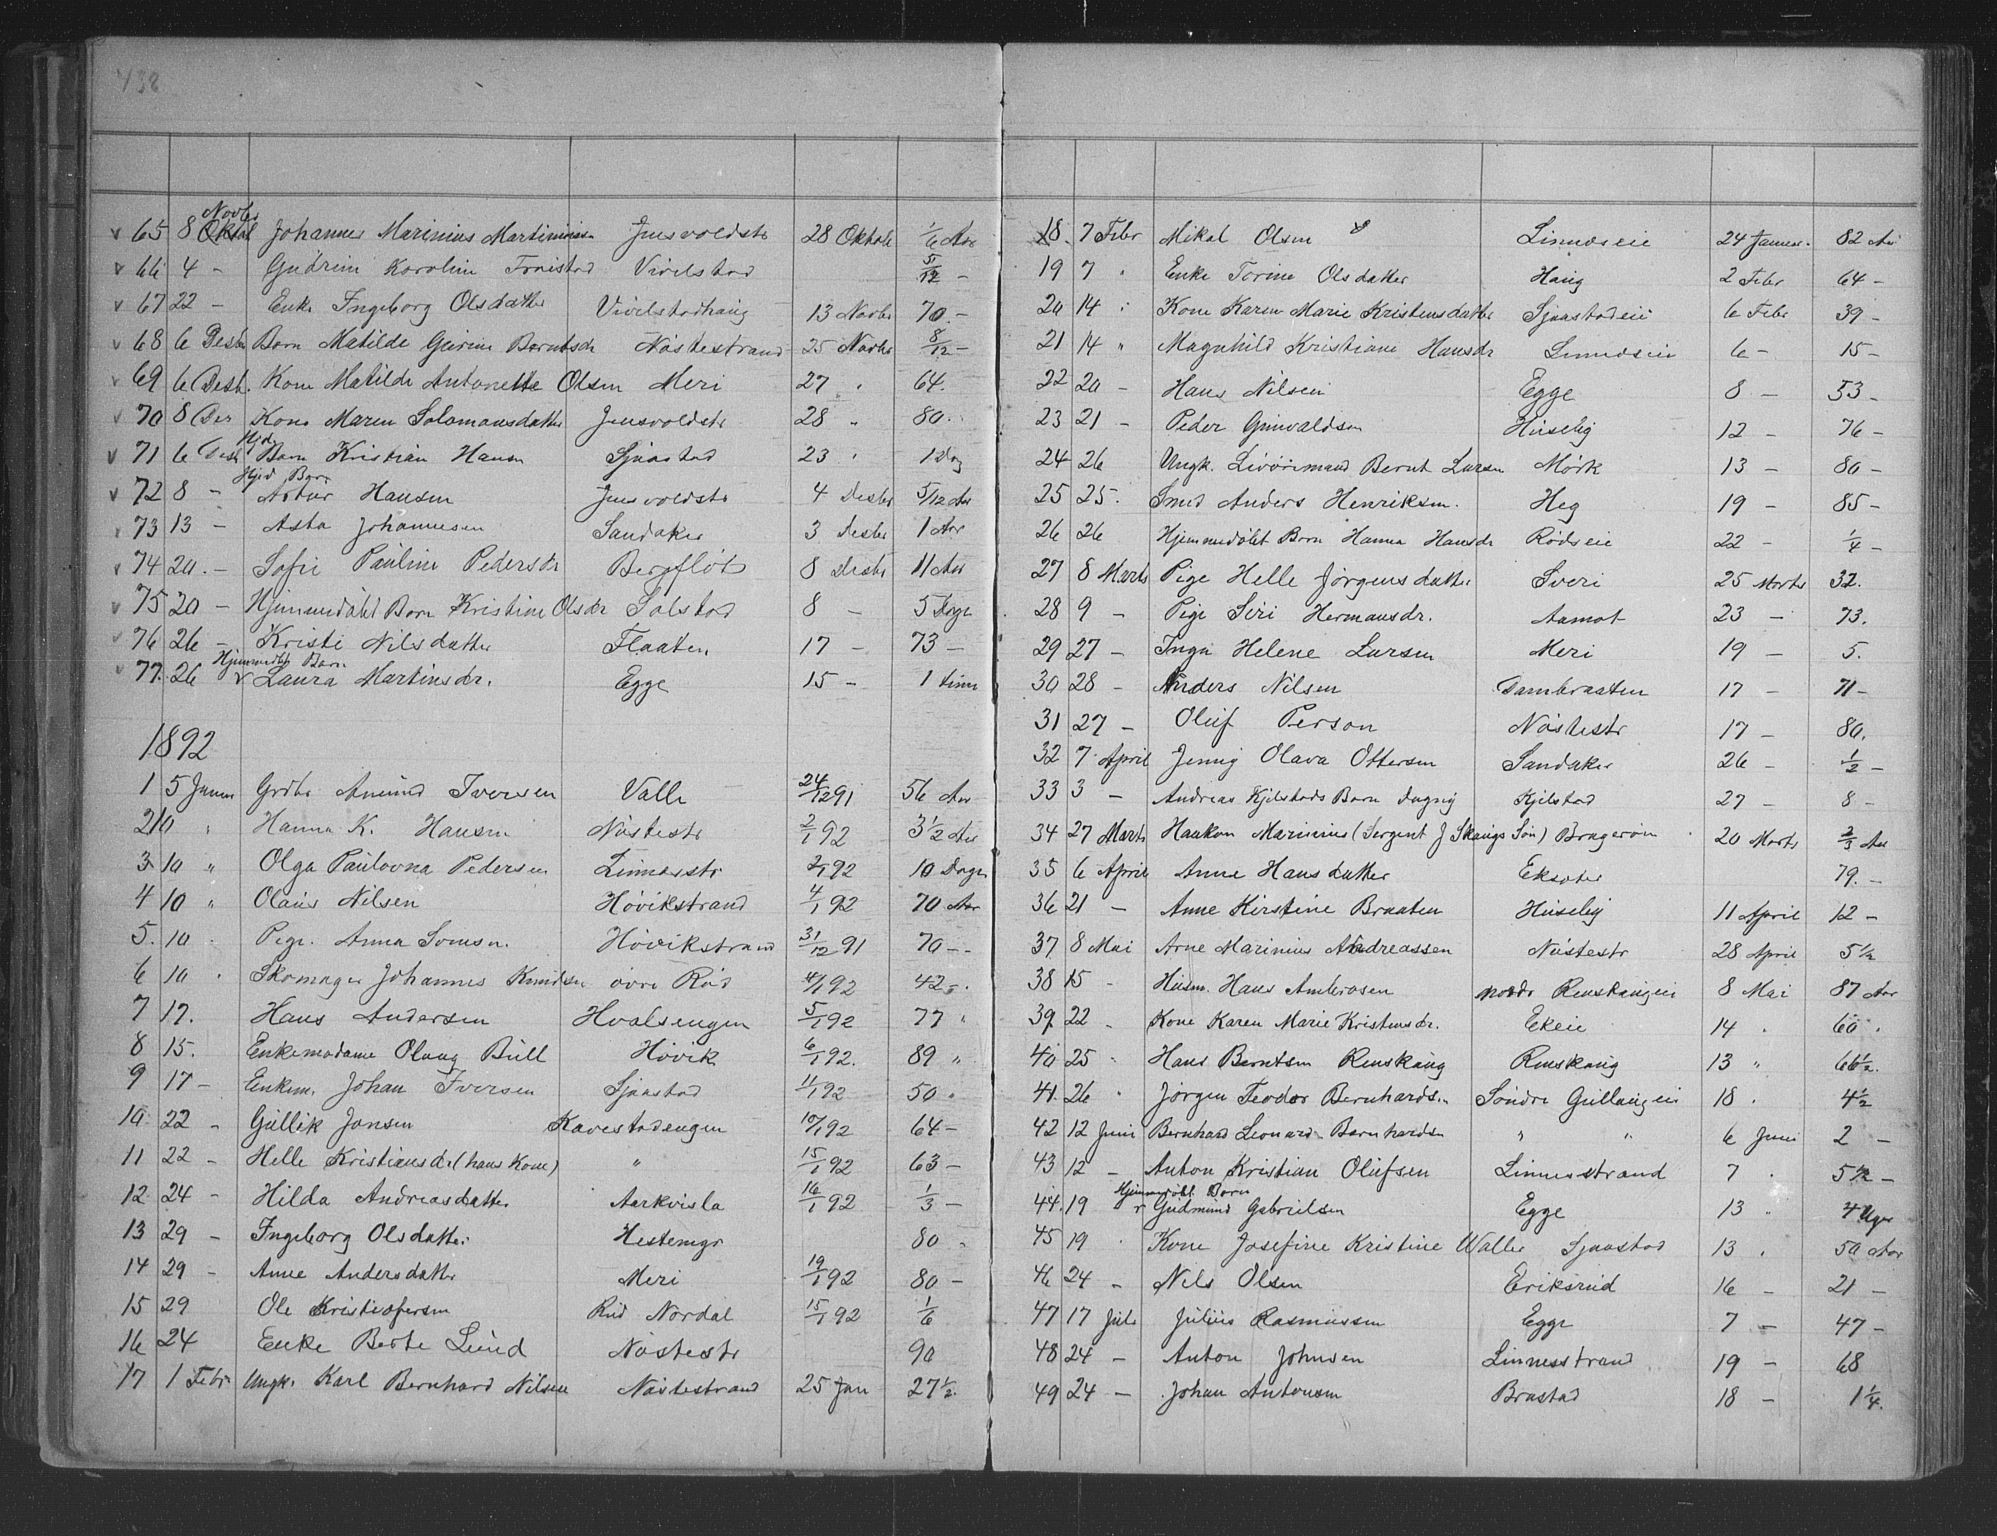 438
65 8 Novbr Oktob Johannes Marinius Martiniusen Jensvoldstr 28 Oktob 1/6 Aar
66 4 - Gudrun Karoline Vivelstad 5/12 -
67 22 - Enke Ingeborg Olsdatter Vivelstadhaug 13 Novbr 70 -
68 6 Desbr Barn Matilde Gurine Berntsdr Nöstestrand 25 Novbr 8/12 -
69 6 Desb. Kone Matilde Antonette Olsen Meri 27 " 64.
70 8 Des Kone Maren Salamonsdatter Jensvoldstr 28 " 80.
71 6 Desb Hjd. Barn Kristian Hansen Sjaastad 23 " 1 Dag
72 8 - Hjed Barn Artur Hansen Jensvoldstr 4 Desbr 5/12 Aar
73 13 - Asta Johannesen Sandaker 3 Desbr 1 Aar
74 20. - Sofie Pauline Pedersdr Bergflöt 8 Desbr 11 Aar
75 20 - Hjemmedöbt Barn Kristine Olsdr Solstad 8 - 5 Dage
76 26 - Kristi Nilsdatter Flaaten 17 - 73 -
77. 26 Hjemmedbt Barn Laura Martinsdr. Egge 15 - 1 time
1892
1 5 Januar Grdbr Amund Iversen Valle 24/12 91 56 Aar
2 10 " Hanna K. Hansen Nöstestr 2/1 92 3 1/2 Aar
3 10 " Olga Paulovna Pedersen Linnesstr 2/1 92 10 Dage
4 10 " Olaus Nilsen Hövikstrand 4/1 92 70 Aar
5. 10 " Pige. Anna Hövikstrand 31/12 91 70 -
6 10 " Skomager Johannes Knudsen övre Röd 4/1 92 42 -
7 17. Hans Andersen Hvalsengen 5/1 92 77 "
8 15. Enkemadame Olaug Bull Hövik 6/1 92. 89 "
9 17 - Enkem. Johan Iversen Sjaastad 11/1 92 50 "
10. 22 - Gullik Jansen Kavestadengen 10/1 92 64 -
11 22 - Helle Kristiansdr (hans Kone) " 15/1 92 63 -
12. 24 - Hilda Andreasdatter Aarkvisla 16/1 92 1/3 -
13 29 - Ingeborg Olsdatter Hestengr 80 -
14 29 - Anne Andersdatter Meri 19/1 92 80 -
15 29 Ole Kristiofersen Rud Nordal 15/1 92 1/6
16 24 Enke Berte Lund Nöstestr 90
17 1 Febr. Ungk. Karl Bernhard Nilsen Nöstestrand 25 Jan 27 1/2.
18. 7 Febr Mikal Olsen Linneseie 24 Januar. 82 Aar
19 7 " Enke Torine Olsdatter Haug 2 Febr 64 -
20 14 " Kone Karen Marie Kristensdatter Sjaastadeie 6 Febr 39 -
21 14 " Magnhild Kristiane Hansdr Linneseie 6 - 15 -
22 20 - Hans Nilsen Egge 8 - 53 -
23 21 - Peder Gunvaldsen Huseby 12 - 76 -
24 26 Ungk. Bernt Larsen Mörk 13 - 80 -
25 25. Smed Anders Henriksen. Heg 19 - 85 -
26 26 Hjemmedöbt Barn Hanna Hansdr Rödseie 22 - 1/4 -
27 8 Marts Pige Helle Jörgensdatter Sveri 25 Marts 32.
28 9 - Pige Siri Hermansdr. Aamot 23 - 73.
29 27 - Inga Helene Larsen Meri 19 - 5.
30 28 - Anders Nilsen Dambraaten 17 - 71 -
31 27 - Oluf Person Nöstestr 17 - 80.
32 7 April Jenny Olava Ottersen Sandaker 26 - 1/2 -
33 3 - Andreas Kjilstads Barn Dagny Kjilstad 27 - 8 -
34 27 Marts Haakon Marinius (Sergent J Skaugs Sön) Bragerøen 20 Marts 2/3 Aar
35 6 April Anne Hansdatter Eksæter 79. -
36 21 - Anne Kirstine Braaten Huseby 11 April 12 -
37 8 Mai Arne Marinius Andreassen Nöstestr 28 April 5 1/2
38 15 - Husm. Hans Ambrosen nordr Renskaugeie 8 Mai 87 Aar
39. 22 " Kone Karen Marie Kristensdr. Ekeie 14 " 60 "
40 25 " Hans Berntsen Renskaug Renskaug 13 " 66 1/2.
41. 26 " Jörgen Teodor Bernhards. Söndre Gullaugeie 18 " 4 1/2
42 12 Juni Bernhard Leonard Bernhardsen " " 6 Juni 2 -
43 12 - Anton Kristian Olufsen Linnesstrand 7 " 5 1/2 -
44. 19 Hjemmedöbt Barn Gudmund Gabrielsen Egge 13 " 4 Uger
45 19 " Kone Josefine Kristine Walle Sjaastad 13 " 50 Aar
46 24 - Nils Olsen Eriksrud 16 - 21 -
47 17 Juli Julius Rasmussen Egge 7 - 47 -
48 24 - Anton Johnsen Linnesstrand 19 - 68
49 24 - Johan Antonsen Brastad 18 - 1 1/4.